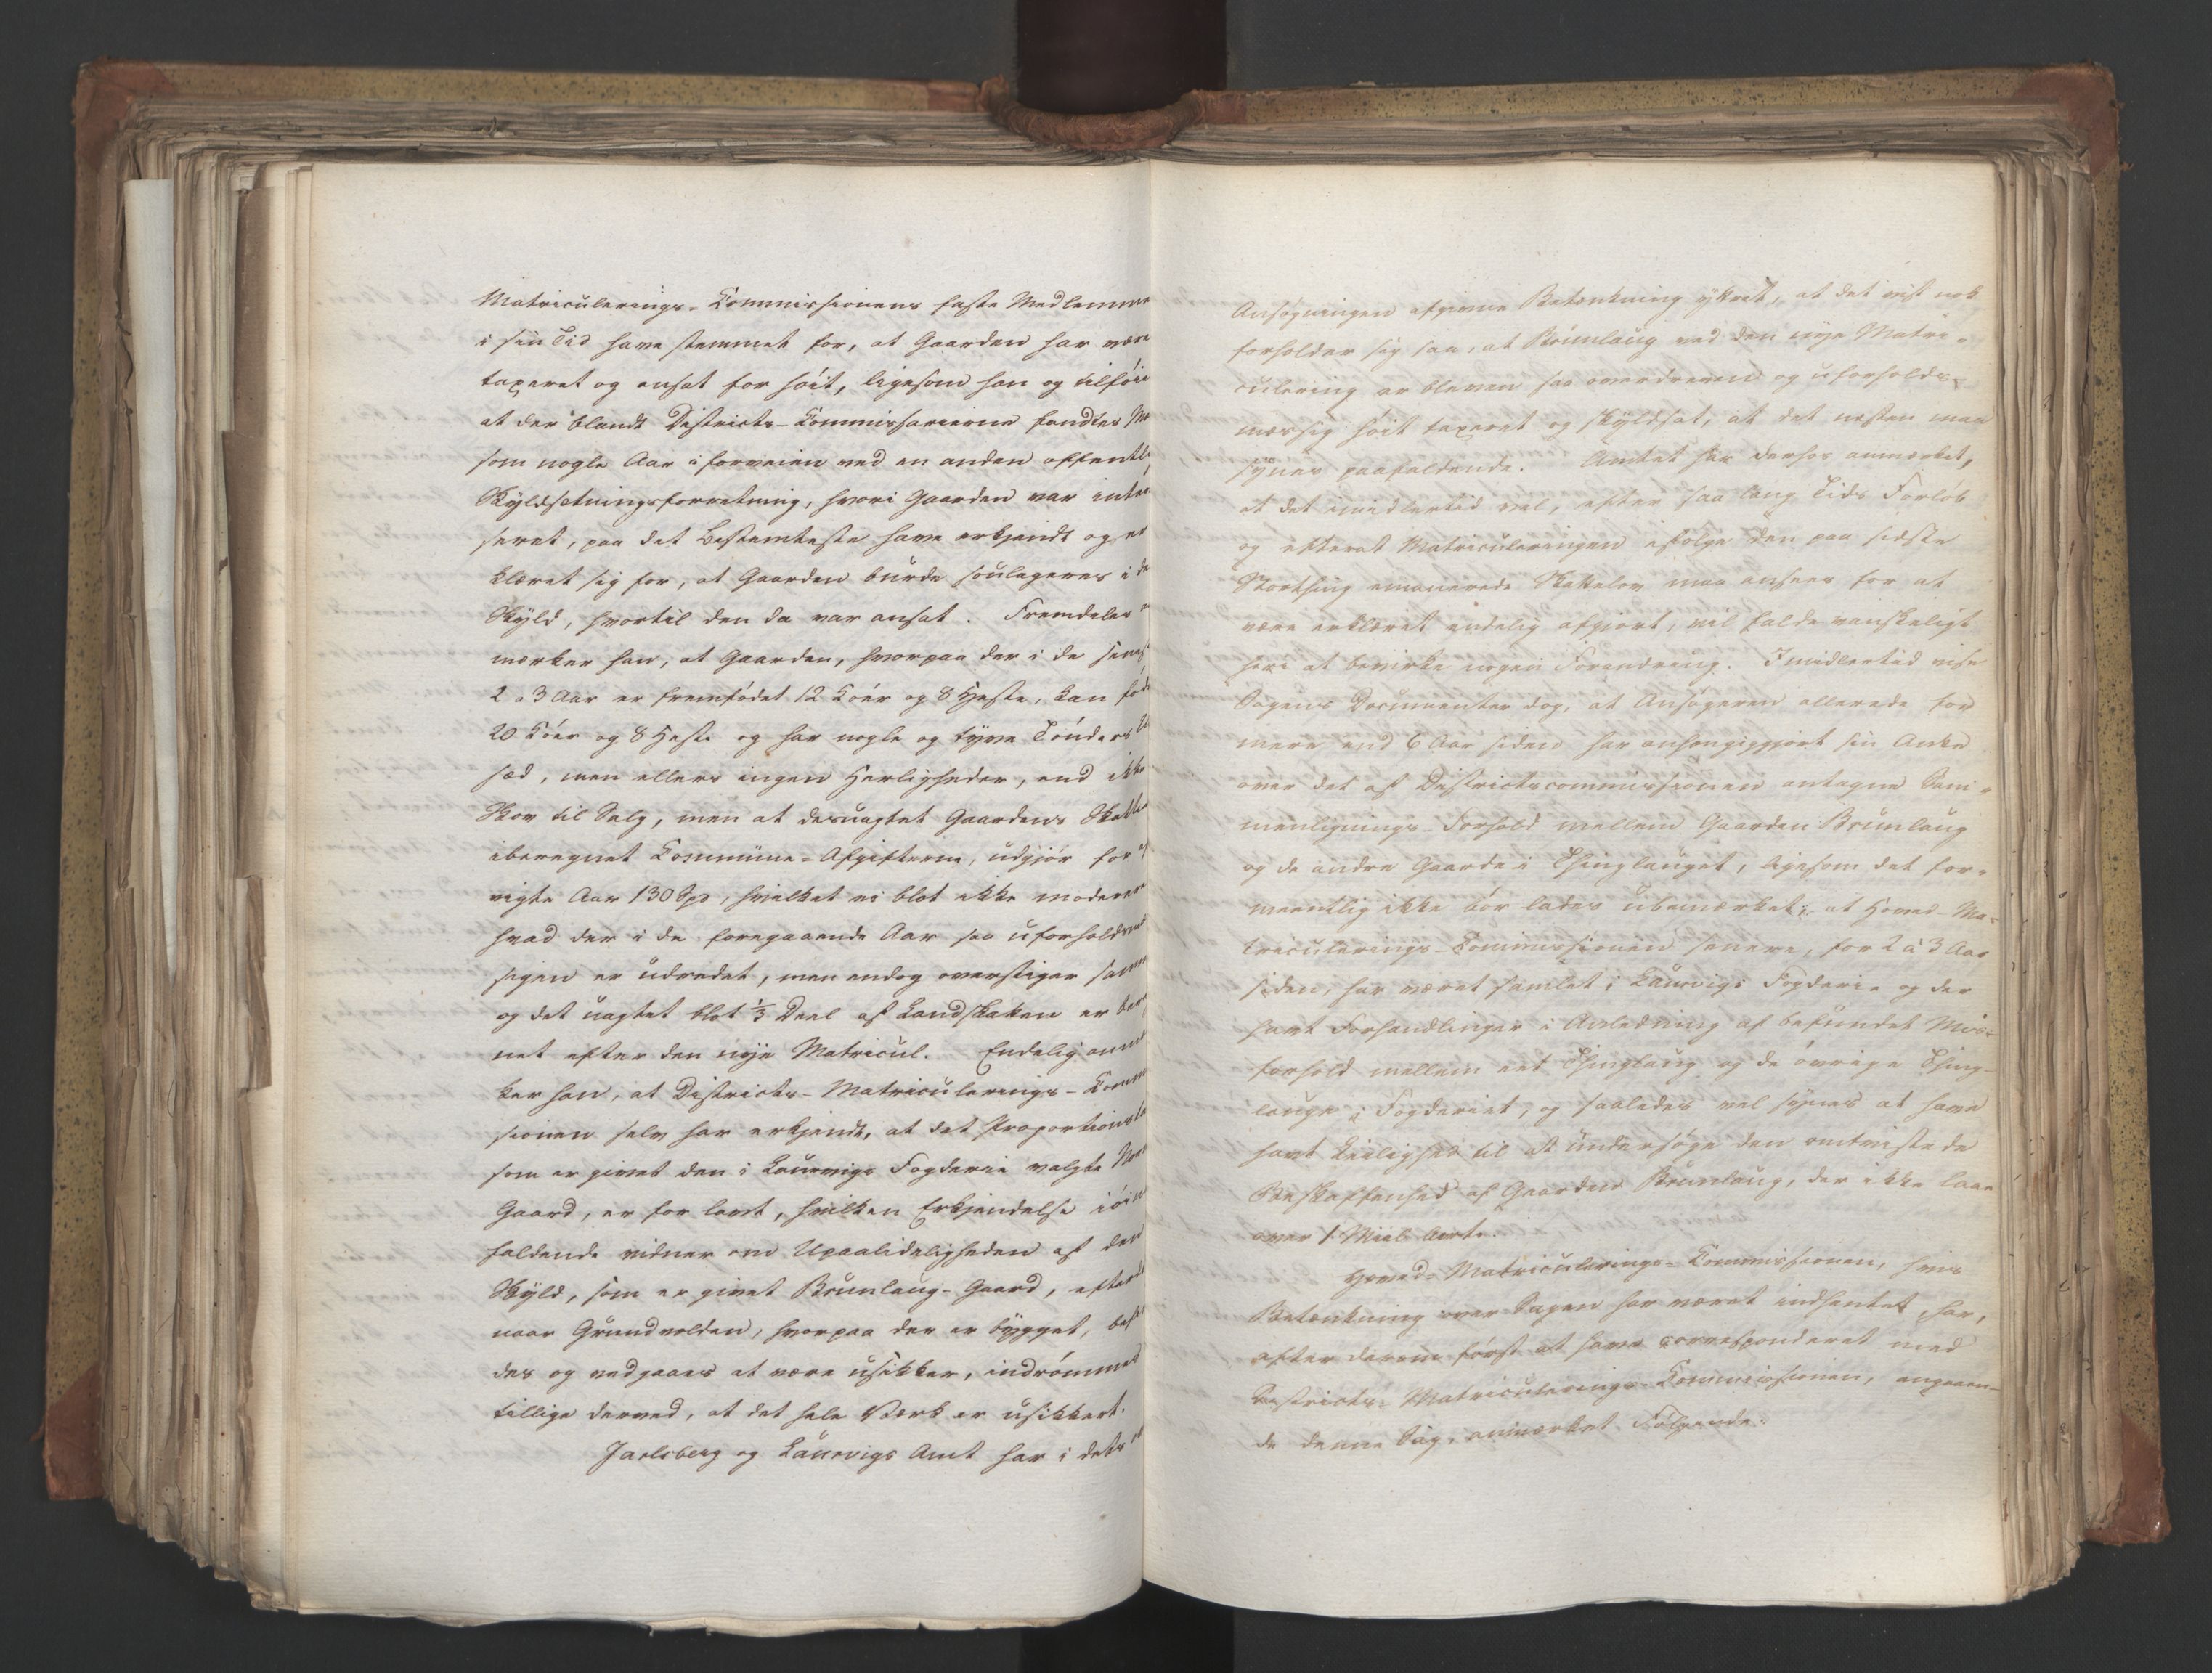 Matriculerings-Commissionens faste Medlemme
i sin Tid have stemmet for, at Gaarden har være
taxeret og ansat for høit, ligesom han og tilføie
at der blandt Districts-Commissairerne fandtes
som nogle Aar i forveien ved en anden offentl
Skyldsetningsforretning, hvori Gaarden var inter
seret, paa det Bestemteste have erkjendt og er
klæret sig for, at Gaarden burde soulageres i de
Skyld, hvortil den da var ansat. Fremdeles
mærker han, at Gaarden, hvorpaa der i de senes
2 a 3 Aar er fremfødet 12 Køer og 8 Heste, kan føde
20 Køer og 8 Heste og har nogle og tyve Tønders
sæd, men ellers ingen Herligheder, end ikke
Skov til Salg, men at desuagtet Gaardens Skatte
iberegnet Commune-Afgifterne, udgjør for
rigte Aar 130 Spd, hvilket ei blot ikke moderere
hvad der i de foregaaende Aar saa uforholdsmæ
sigen er udredet, men endog overstiger samme
og det uagtet blot ⅓ Deel af Landskatten er bere
net efter den nye Matricul. Endelig anmæ
ker han, at Districts-Matriculerings-Comm
sionen selv har erkjendt, at det Proportions
som er givet den i Laurvigs Fogderie valgte Nor
Gaard, er for lavt, hvilken Erkjendelse iøin
faldende vidner om Upaalideligheden af den
Skyld, som er givet Brunlaug-Gaard, efterdi
naar Grundvolden, hvorpaa der er bygget,
des og vedgaaes at være usikker, indrømmes
tillige derved, at det hele Værk er usikkert.
Jarlsberg og Laurvigs Amt har i dets
Ansøgningen afgivne Betænkning yttret, at det vist nok
forholder sig saa, at Brunlaug ved den nye Matri-
culering er bleven saa overdreven og uforholds-
mæssig høit taxeret og skyldsat, at det næsten maa
synes paafaldende. Amtet har derhos anmærket,
at det imidlertid vel, efter saa lang Tids Forløb
og efterat Matriculeringen ifølge den paa sidste
Storthing emanerede Skattelov maa ansees for at
være erklæret endelig afgjort, vil falde vanskeligt
heri at bevirke nogen Forandring. Imidlertid vise
Sagens Documenter dog, at Ansøgeren allerede for
mere end 6 Aar siden har anhængiggjort sin Anke
over det af Districtscommissionen antagne Sam-
menlignings-Forhold mellem Gaarden Brunlaug
og de andre Gaarde i Thinglauget, ligesom det for-
meentlig ikke bør lades ubemærket, at Hoved-Ma-
triculerings-Commissionen senere, for 2 à 3 Aar
siden, har været samlet i Laurvigs Fogderie og der
havt Forhandlinger i Anledning af befundet Mis-
forhold mellem eet Thinglaug og de øvrige Thing-
lauge i Fogderiet, og saaledes vel synes at have
havt Leilighed til at undersøge den omtvistede
Beskaffenhed af Gaarden Brunlaug, der ikke laae
over 1 Miil borte.
Hoved-Matriculerings-Commissionen, hvis
Betænkning over Sagen har været indhentet, har,
efter derom først at have correspoderet med
Districts-Matriculerings-Commissionen, angaaen-
de denne Sag, anmærket Følgende: